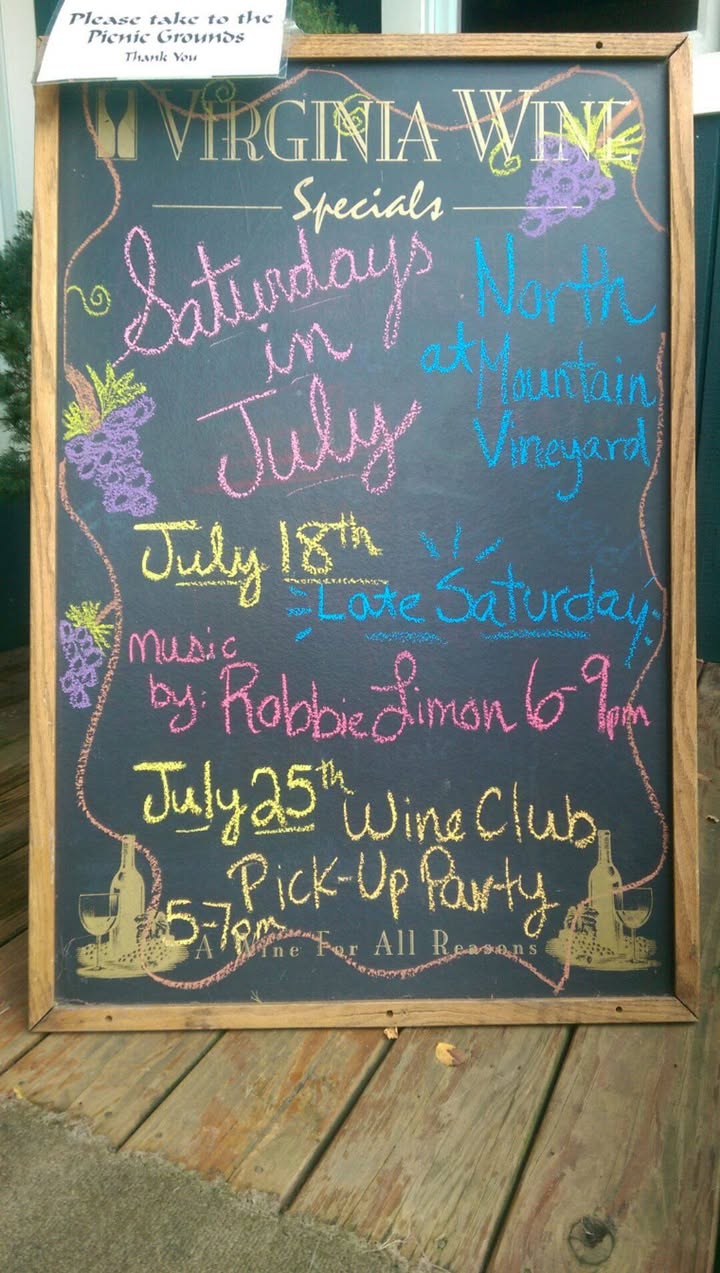 Please take to the
Picnic Grounds
Thank You
VIRGINIA WINE
Specials
Saturdays
in
July
North
at Mountain
Vineyard
July 18th
Late Saturday
music
by: Robbie Limon 6-9pm
July 25th Wine Club
Pick-Up Party
5-7pm
A Wine For All Reasons